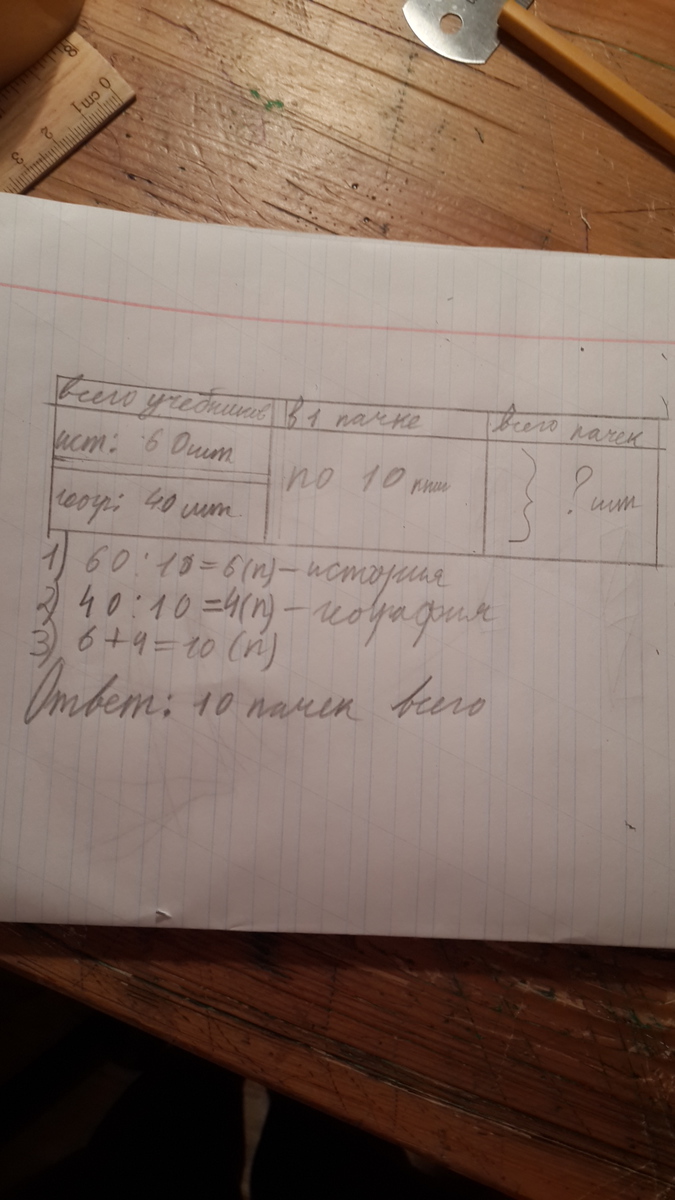 8
0 cm 1
2
3
всего учебников в 1 пачке всего пачек
ист: 60шт
по 10 } ? шт
геогр: 40 шт.
1) 60:10=6(п) – история
2) 40:10=4(п) – география
3) 6+4=10 (п)
Ответ: 10 пачек всего